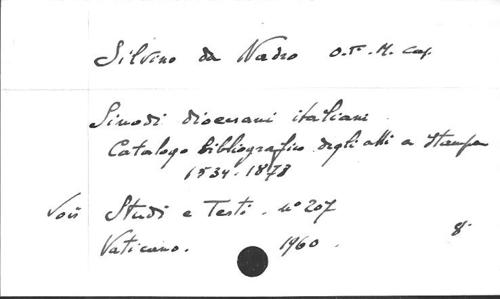 Silvino da Nadro O.F.M. Cap.
Sinodi diocesani italiani
Catalogo bibliografico degli atti a stampa
1534-1878
Voir Studi e Testi. n° 207
Vaticano. 1960. 8.